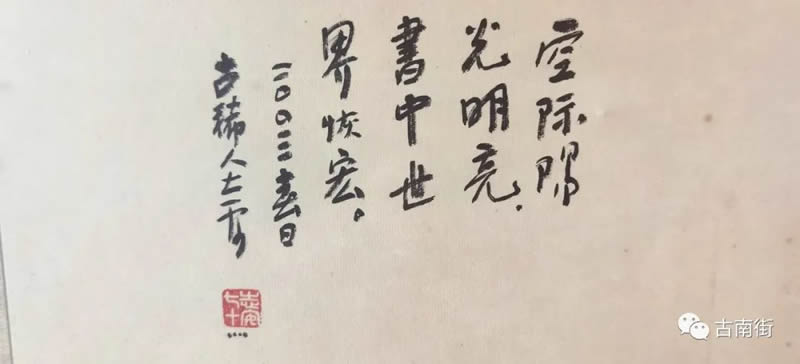 空际陽
光明亮.
書中世
界恢宏。
二〇〇三春日
古稀人士
七十
古南街